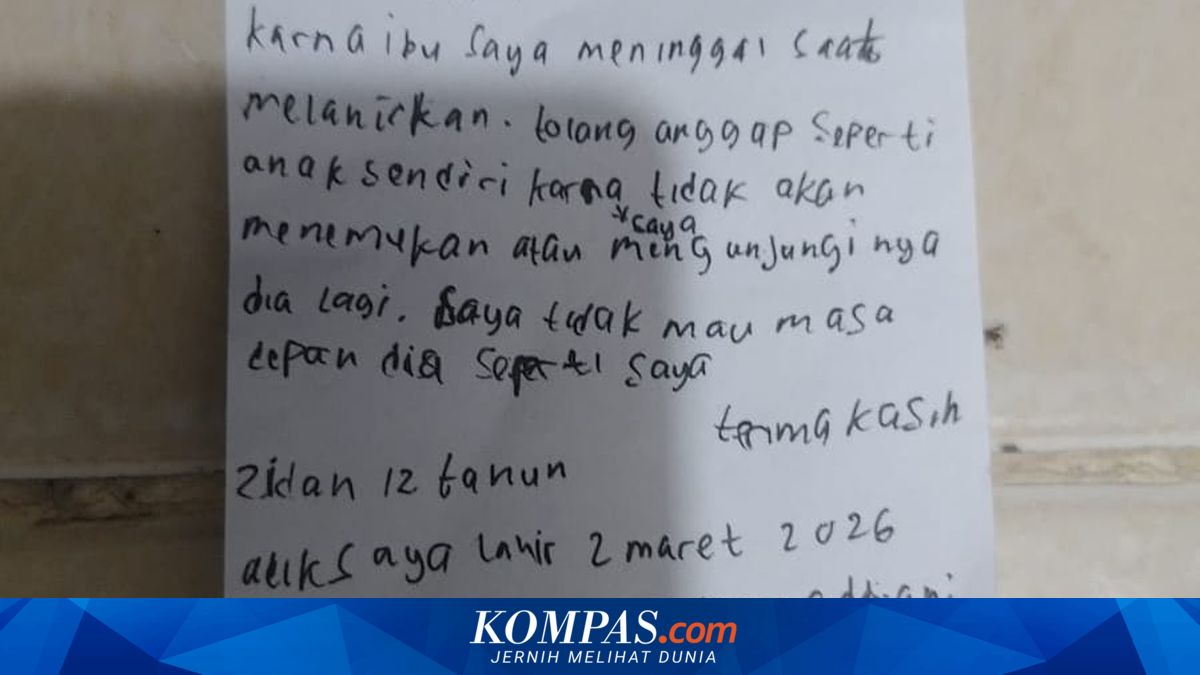 karna ibu saya meninggal saat
melahirkan. tolong anggap seperti
anak sendiri karna tidak akan
*saya
menemukan atau mengunjungi nya
dia lagi. saya tidak mau masa
depan dia seperti saya
terima kasih
Zidan 12 tahun
adik saya lahir 2 maret 2026
KOMPAS.com
JERNIH MELIHAT DUNIA